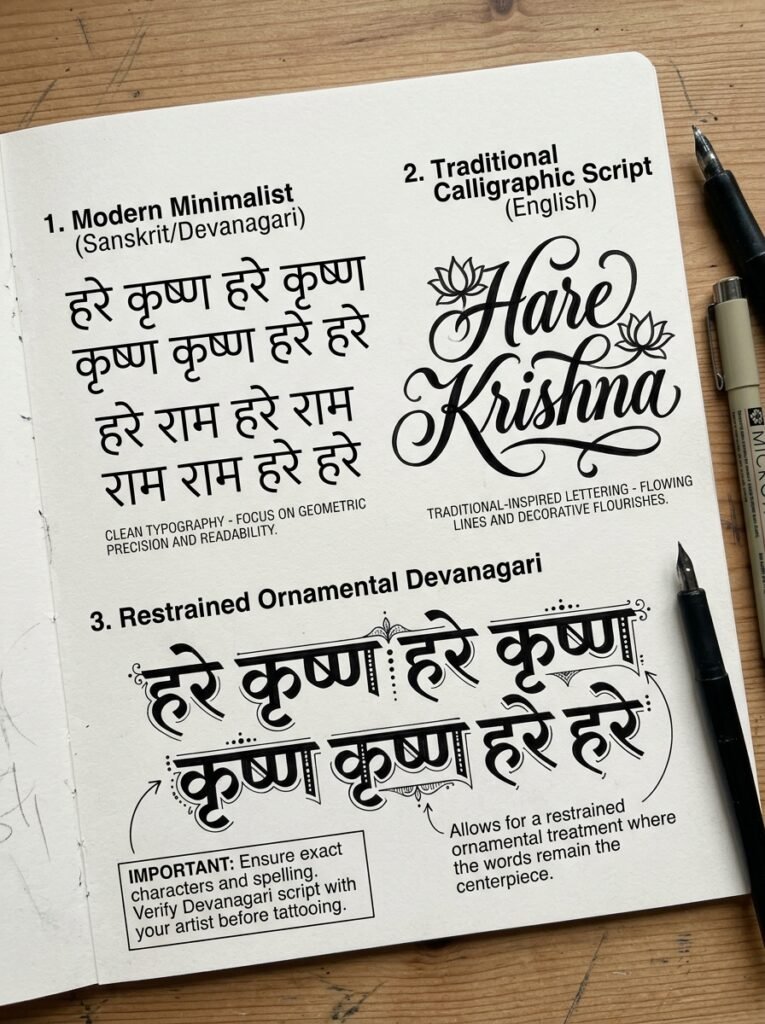 1. Modern Minimalist
(Sanskrit/Devanagari)
हरे कृष्ण हरे कृष्ण
कृष्ण कृष्ण हरे हरे
हरे राम हरे राम
राम राम हरे हरे
CLEAN TYPOGRAPHY - FOCUS ON GEOMETRIC
PRECISION AND READABILITY.
2. Traditional
Calligraphic Script
(English)
Hare
Krishna
TRADITIONAL-INSPIRED LETTERING - FLOWING
LINES AND DECORATIVE FLOURISHES.
3. Restrained Ornamental Devanagari
हरे कृष्ण हरे कृष्ण
कृष्ण कृष्ण हरे हरे
IMPORTANT: Ensure exact
characters and spelling.
Verify Devanagari script with
your artist before tattooing.
Allows for a restrained
ornamental treatment where
the words remain the
centerpiece.